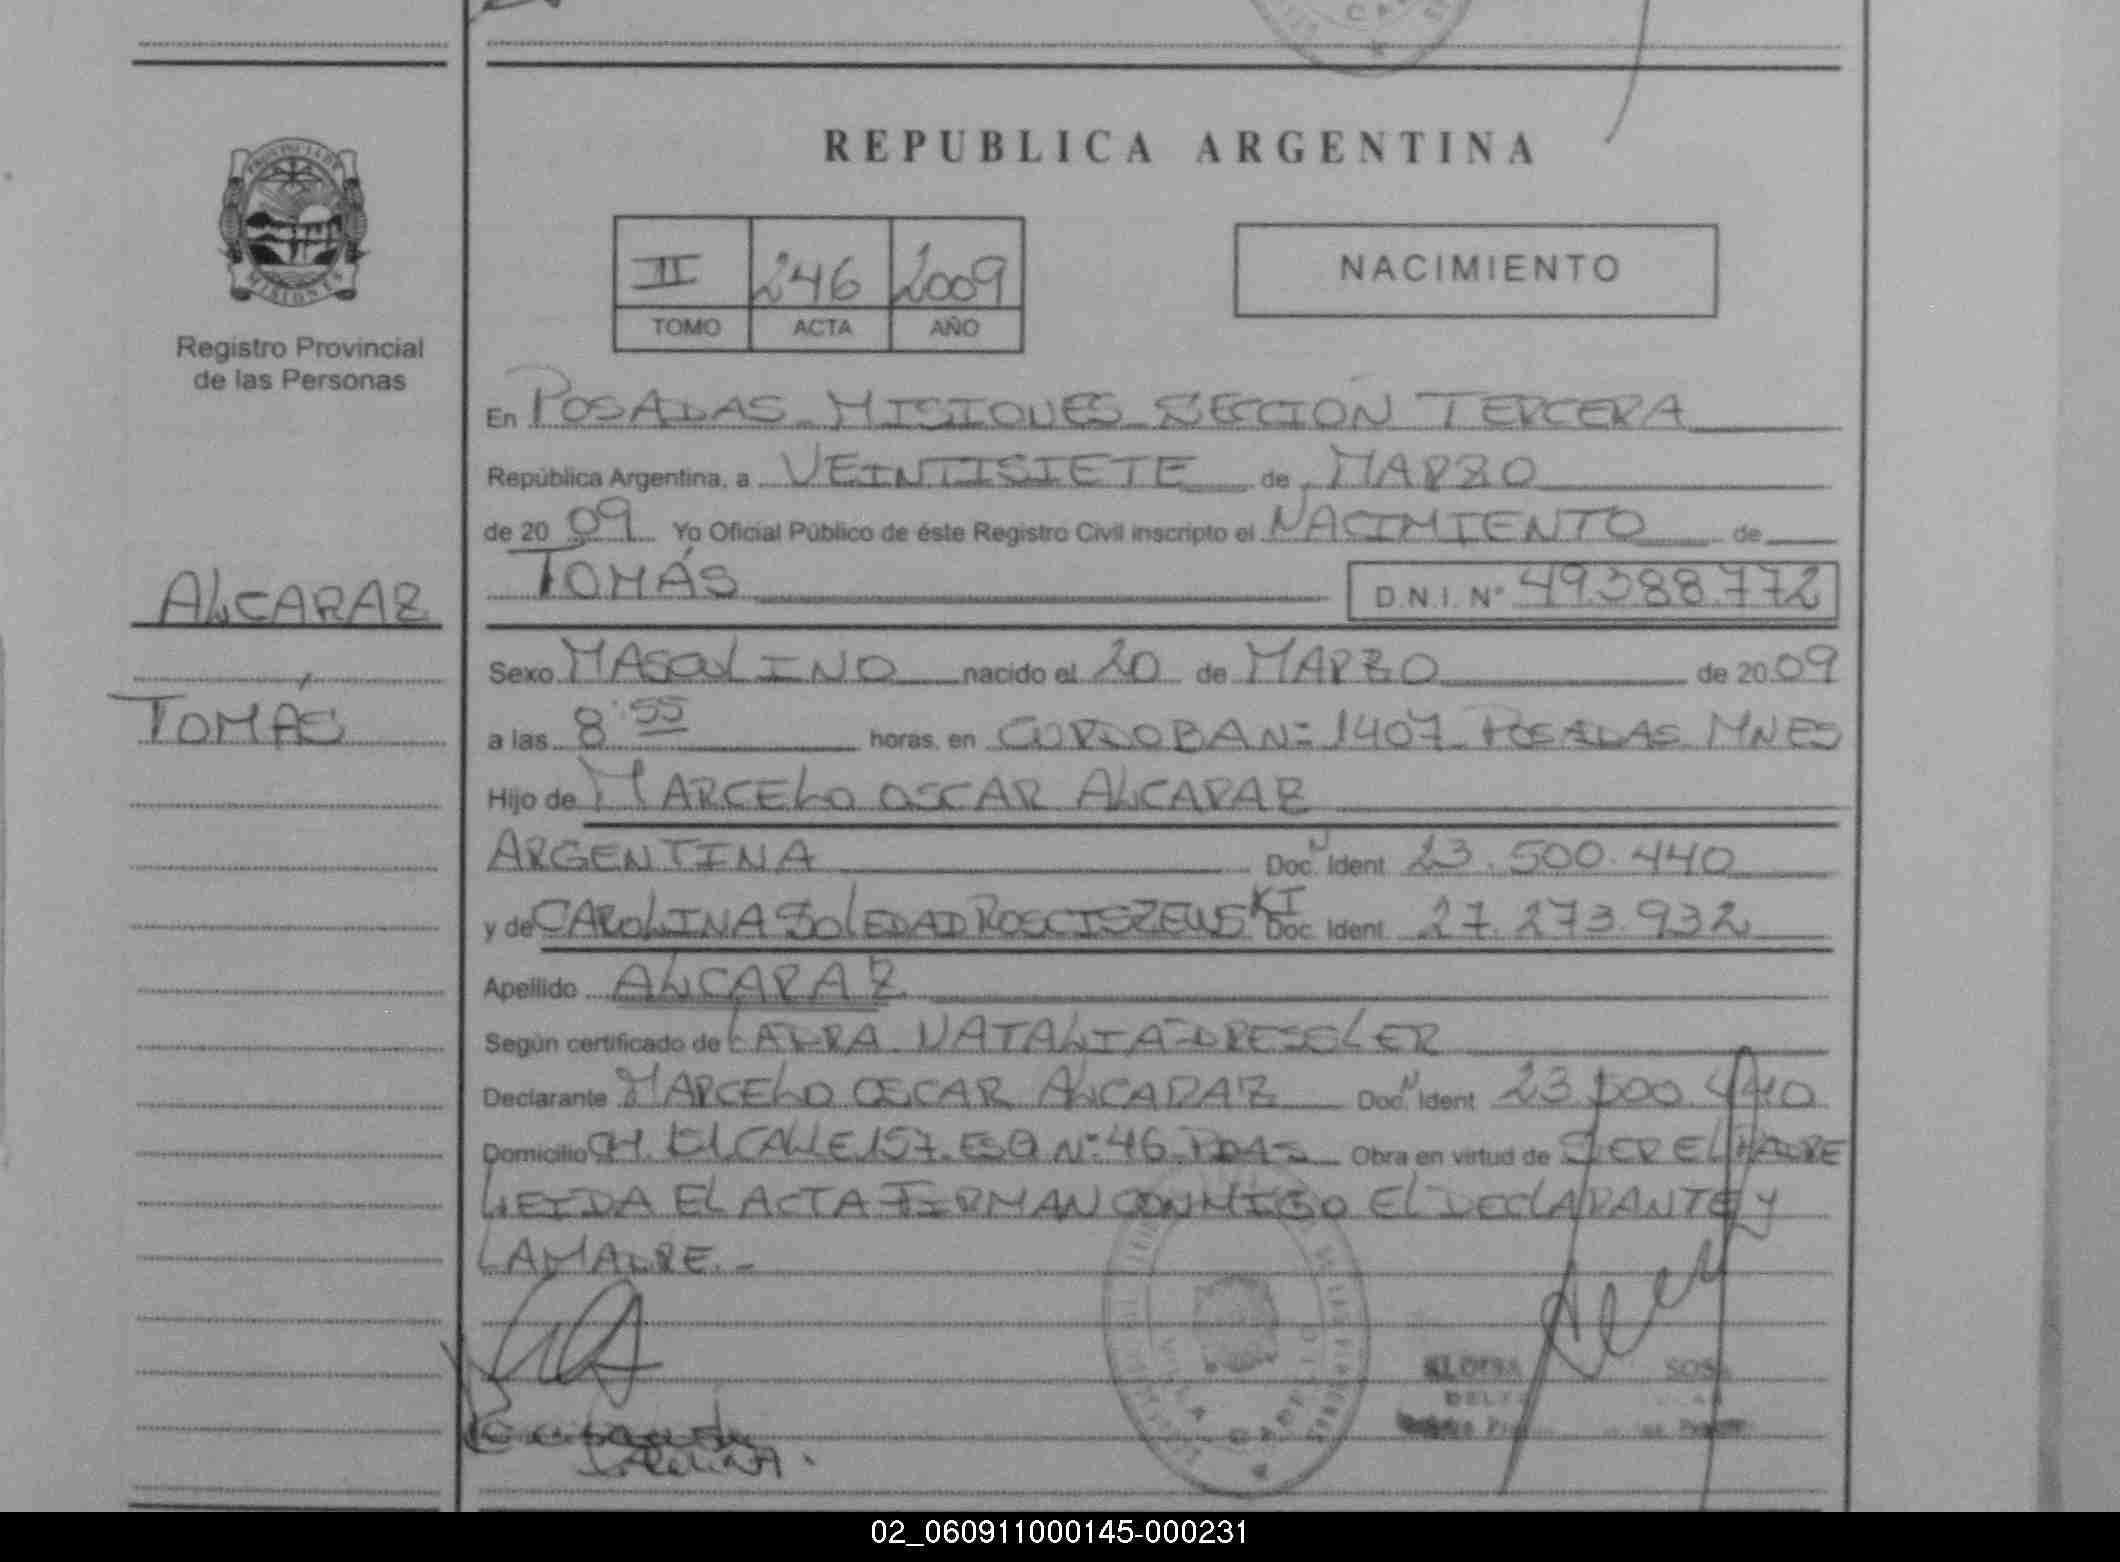 CA
REPUBLICA ARGENTINA
PROVINCIA DE
MISIONES
Registro Provincial
de las Personas
II 246 2009
TOMO ACTA AÑO
NACIMIENTO
En POSADAS - MISIONES - SECCIÓN TERCERA
República Argentina, a VEINTISIETE de MARZO
de 20 09 Yo Oficial Público de éste Registro Civil inscripto el NACIMIENTO de
TOMÁS D.N.I. Nº 49.388.772
ALCARAZ
TOMÁS
Sexo MASCULINO nacido el 20 de MARZO de 20 09
a las 8:55 horas, en CORDOBA Nº 1407 POSADAS MNES
Hijo de MARCELO OSCAR ALCARAZ
ARGENTINA Doc. Ident. 23.500.440
y de CAROLINA SOLEDAD ROSCISZEWSKI Doc. Ident. 27.273.932
Apellido ALCARAZ
Según certificado de LAURA NATALIA DRESSLER
Declarante MARCELO OSCAR ALCARAZ Doc. Ident. 23.500.440
Domicilio CH. 151. CALLE 157. ESQ Nº 46 PDAS Obra en virtud de SER EL PADRE
LEIDA EL ACTA FIRMAN CONMIGO EL DECLARANTE Y
LA MADRE. -
SOSA
02_060911000145-000231